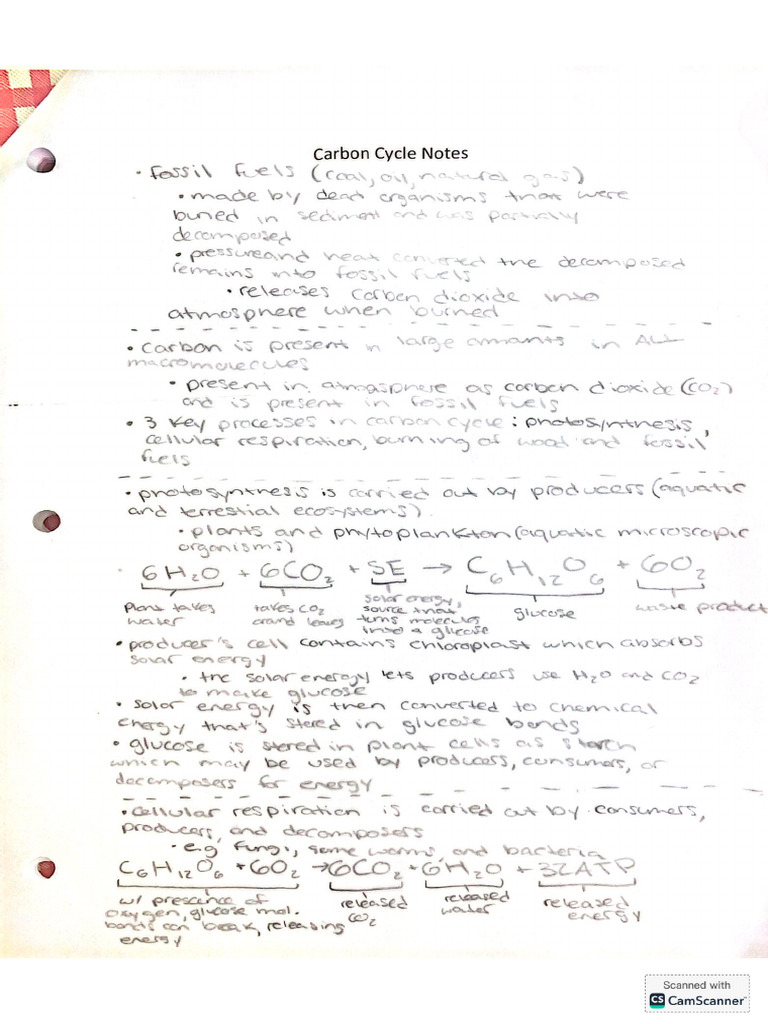 Carbon Cycle Notes
• fossil fuels (coal, oil, natural gas)
• made by dead organisms that were
buried in sediment and was partially
decomposed
• pressure and heat converted the decomposed
remains into fossil fuels
• releases carbon dioxide into
atmosphere when burned
• carbon is present in large amounts in ALL
macromolecules
• present in atmosphere as carbon dioxide (CO₂)
and is present in fossil fuels
• 3 key processes in carbon cycle: photosynthesis,
cellular respiration, burning of wood and fossil
fuels
• photosynthesis is carried out by producers (aquatic
and terrestial ecosystems).
• plants and phytoplankton (aquatic microscopic
organisms)
6H₂O + 6CO₂ + SE → C₆H₁₂O₆ + 6O₂
plant takes water
takes CO₂ around leaves
solar energy, source that turns molecules into a glucose
glucose
waste product
• producer's cell contains chloroplast which absorbs
solar energy
• the solar energy lets producers use H₂O and CO₂
to make glucose
• solar energy is then converted to chemical
energy that's stored in glucose bonds
• glucose is stored in plant cells as starch
which may be used by producers, consumers, or
decomposers for energy
• cellular respiration is carried out by consumers,
producers, and decomposers
• e.g. fungi, some worms, and bacteria
C₆H₁₂O₆ + 6O₂ → 6CO₂ + 6H₂O + 32ATP
w/ presence of oxygen, glucose mol. bonds can break, releasing energy
released CO₂
released water
released energy
Scanned with
CS CamScanner